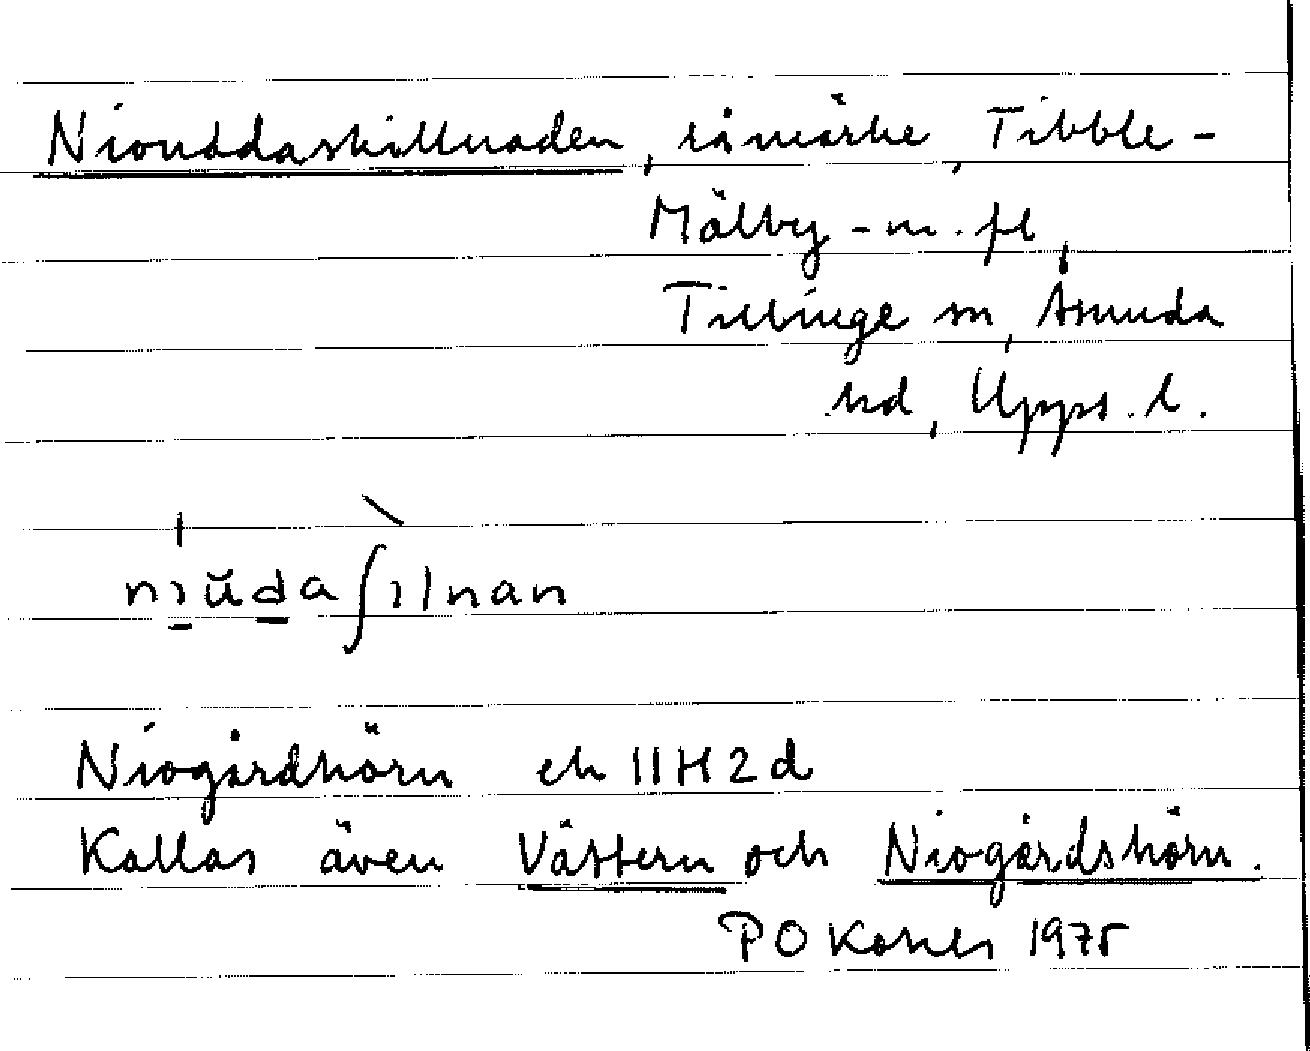 Niouddaskillnaden, råmärke, Tibble-
Mälby - m. fl,
Tillinge sn, Åsunda
hd, Upps. l.
nıŭdaʃılnan
Niogårdhörn ek 11H2d
Kallas även Vättern och Niogårdshörn.
P O 1975